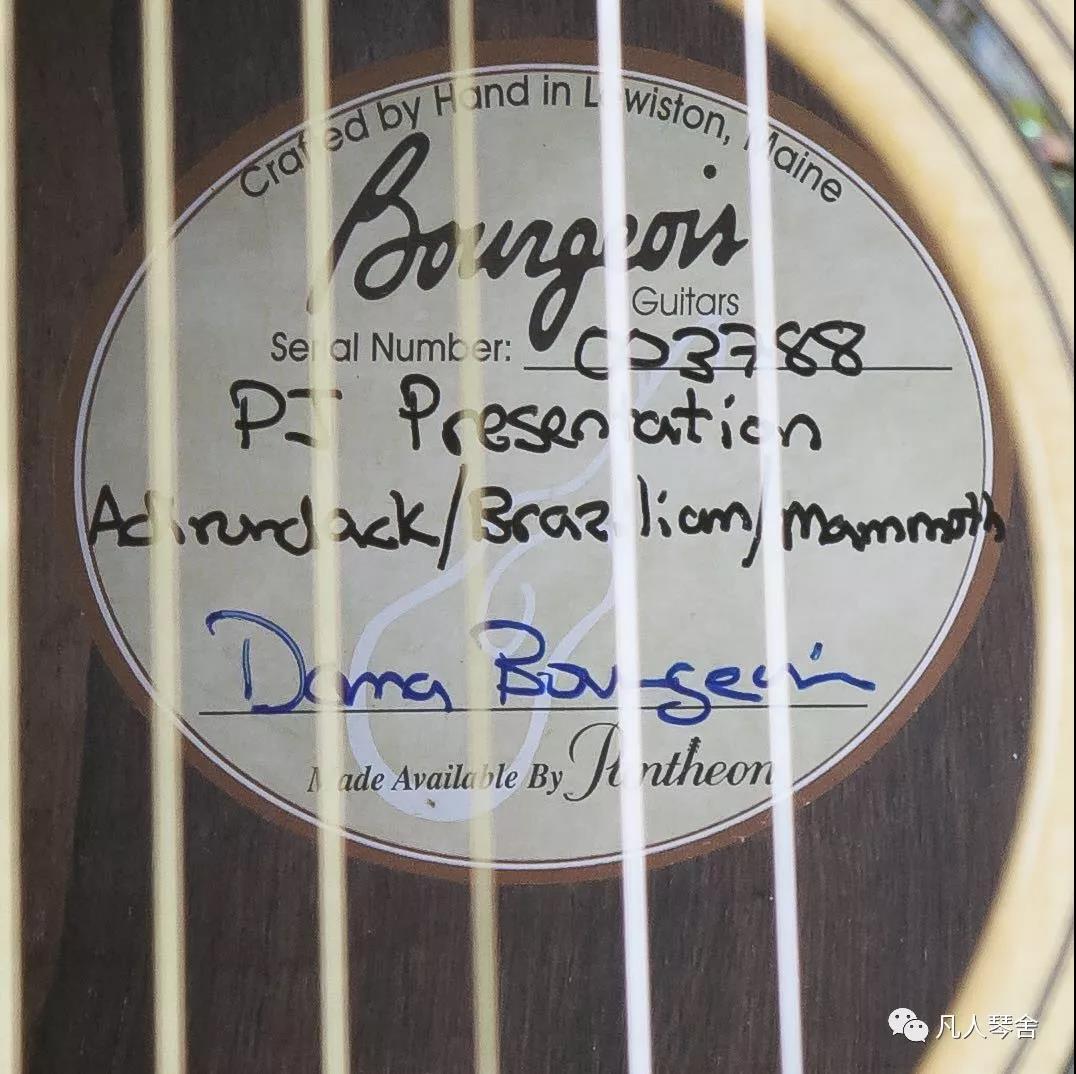 Crafted by Hand in Lewiston, Maine
Bourgeois
Guitars
Serial Number: 003788
PJ Presentation
Adirundack/Brazilian/Mammoth
Dana Bourgeois
Made Available By Pantheon
凡人琴舍